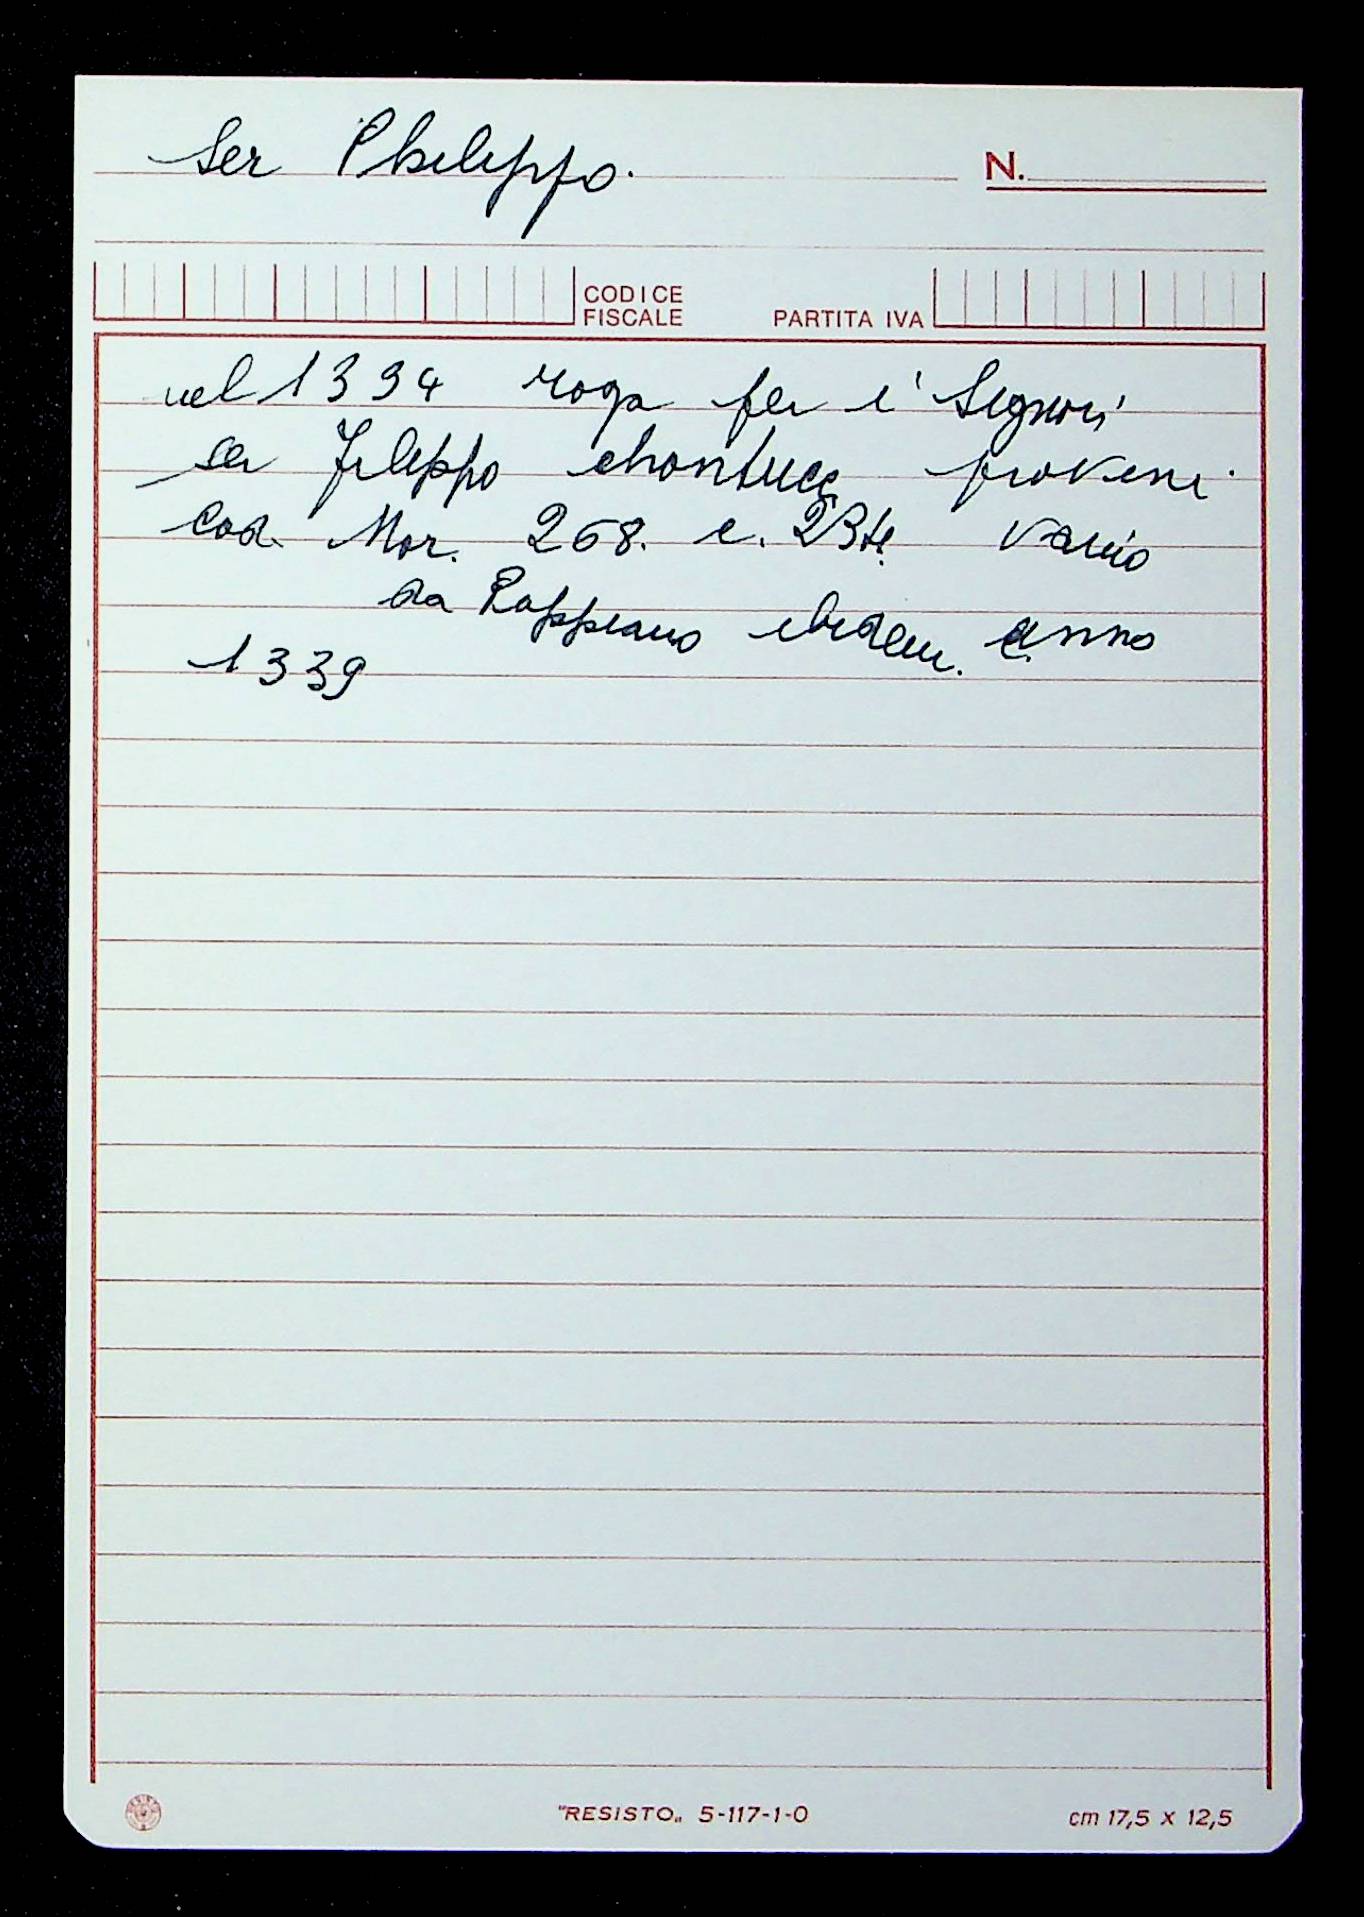 Ser Phileppo.
N.
CODICE
FISCALE
PARTITA IVA
nel 1394 roga per i Signori
ser Fileppo chontucc
cod. Mor. 268. c. Vanio
da Rappiano ibidem. anno
1339
"RESISTO„ 5-117-1-0
cm 17,5 x 12,5